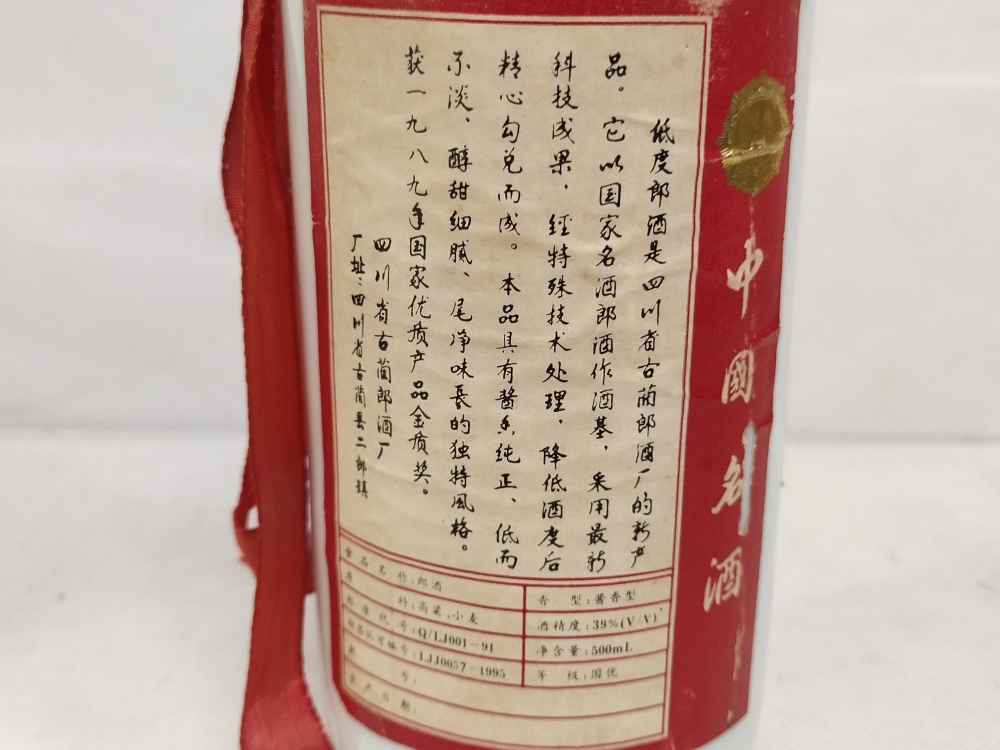 低度郎酒是四川省古蔺郎酒厂的新产
品。它以国家名酒郎酒作酒基，采用最新
科技成果，经特殊技术处理，降低酒度后
精心勾兑而成。本品具有酱香纯正、低而
不淡、醇甜细腻、尾净味长的独特风格。
获一九八九年国家优质产品金质奖。
四川省古蔺郎酒厂
厂址：四川省古蔺县二郎镇
食品名称：郎酒
香 型：酱香型
料：高粱、小麦
酒精度：39%(V/V)
标准代号：Q/LJ001-91
净含量：500mL
编号：LJJ0057-1995
等 级：国优
号：
生产日期：
中國名酒